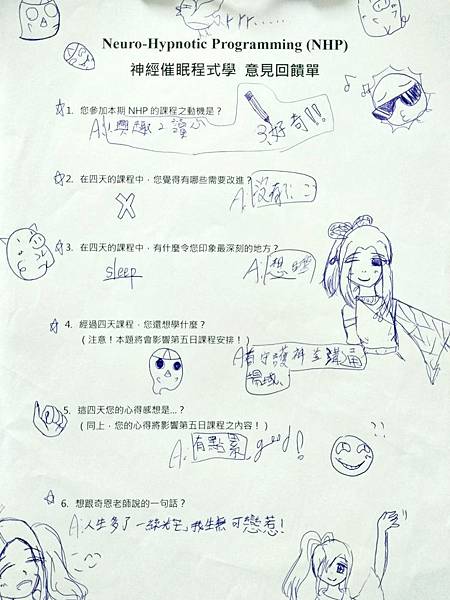 Neuro-Hypnotic Programming (NHP)
神經催眠程式學 意見回饋單
1. 您參加本期 NHP 的課程之動機是？
A:1.興趣 2.
3.好奇!!
2. 在四天的課程中，您覺得有哪些需要改進？
A:沒有
3. 在四天的課程中，有什麼令您印象最深刻的地方？
sleep
A:想睡
4. 經過四天課程，您還想學什麼？
（注意！本題將會影響第五日課程安排！）
A
5. 這四天您的心得感想是...？
（同上，您的心得將影響第五日課程之內容！）
A:有點累, good!
6. 想跟奇恩老師說的一句話？
A:人生多了一絲光芒,我生無可戀惹!